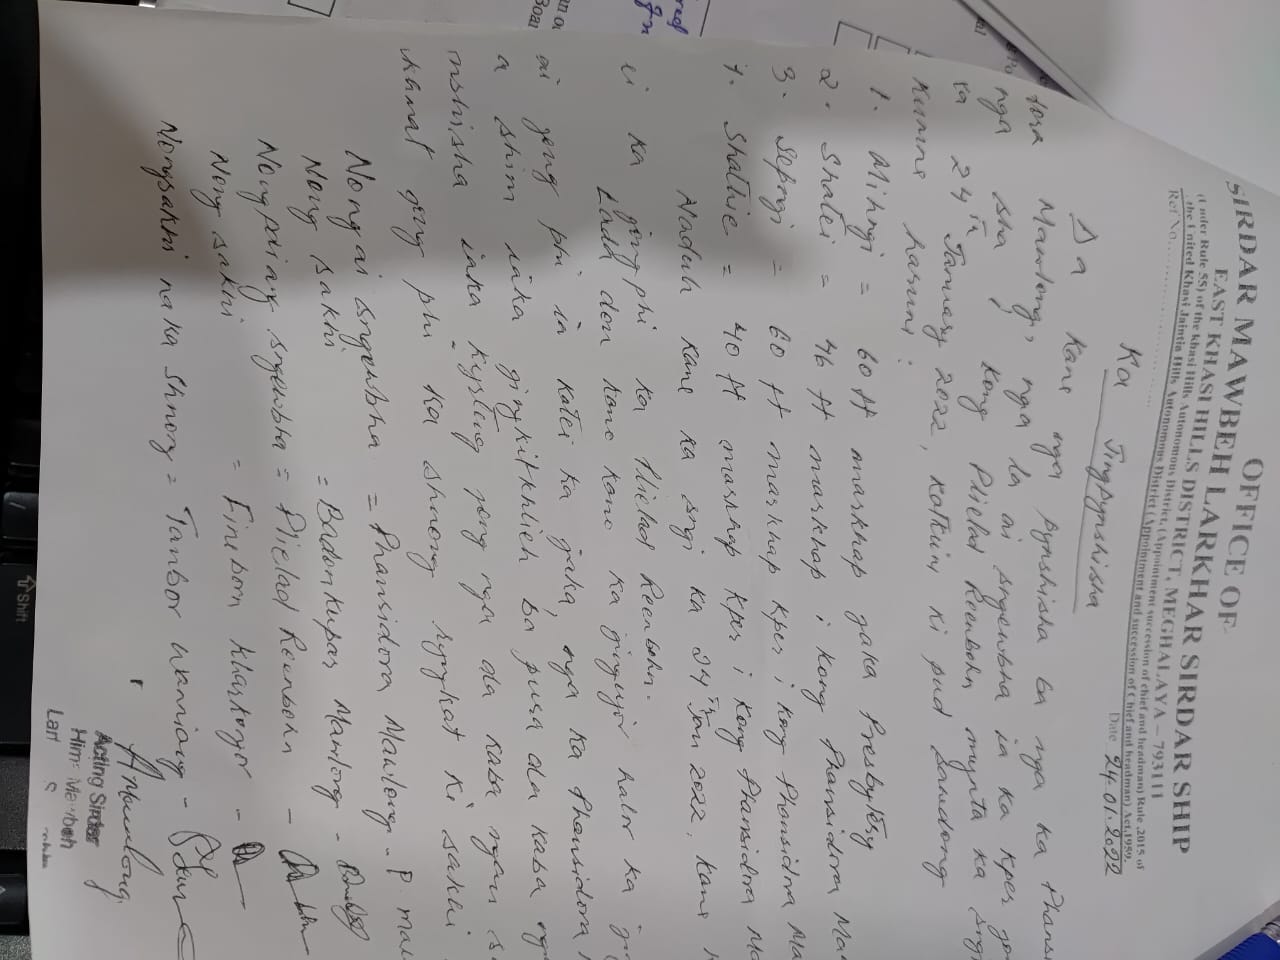 OFFICE OF
SIRDAR MAWBEH LARKHAR SIRDAR SHIP
EAST KHASI HILLS DISTRICT, MEGHALAYA – 793111
(Under Rule 55) of the Khasi Hills Autonomous District, (Appointment succession of chief and headman) Rule, 2015 of
the United Khasi Jaintia Hills Autonomous District (Appointment and succession of Chief and headman) Act, 1959.
Ref No.
Date 24.01.2022
Ka Jingpynshisha
Da kane nga pynshisha ba nga ka Phansi
dora Mawlong, nga la ai sngewbha ia ka kper jong
nga sha kong Plielad Reenbohn mynta ka sngi
ka 24th January 2022, katkin ki pud sawdong
kumne harum:
1. Mihngi = 60 ft markhap jaka Presbytery
2. Shatei = 46 ft markhap, kong Phansidora Ma
3. Sepngi = 60 ft markhap kper, kong Phansidora Ma
4. Shathie = 40 ft markhap kper, kong Phansidora Ma
Naduh kane ka sngi ka 24th Jan 2022, kane
ka jong phi ka Plielad Reenbohn.
Lada don kano kano ka jingujor halor ka
ai jong phi ia katei ka jaka, nga ka Phansidora
a shim iaka jingkitkhlieh ba pura da kaba
mshisha iaka kyrteng jong nga da kaba ngan
khamat jong phi ka shnong ryngkat ki sakhi
Nongai sngewbha = Phansidora Mawlong - P. maw
Nong sakhi = Badonkupar Mawlong -
Nongpdiang sngewbha = Plielad Reenbohn -
Nong sakhi = Fineborn Kharkongor -
Nongsakhi naka Shnong = Tanbor Wanniang -
Acting Sirdar
Hima Mawbeh
Lark